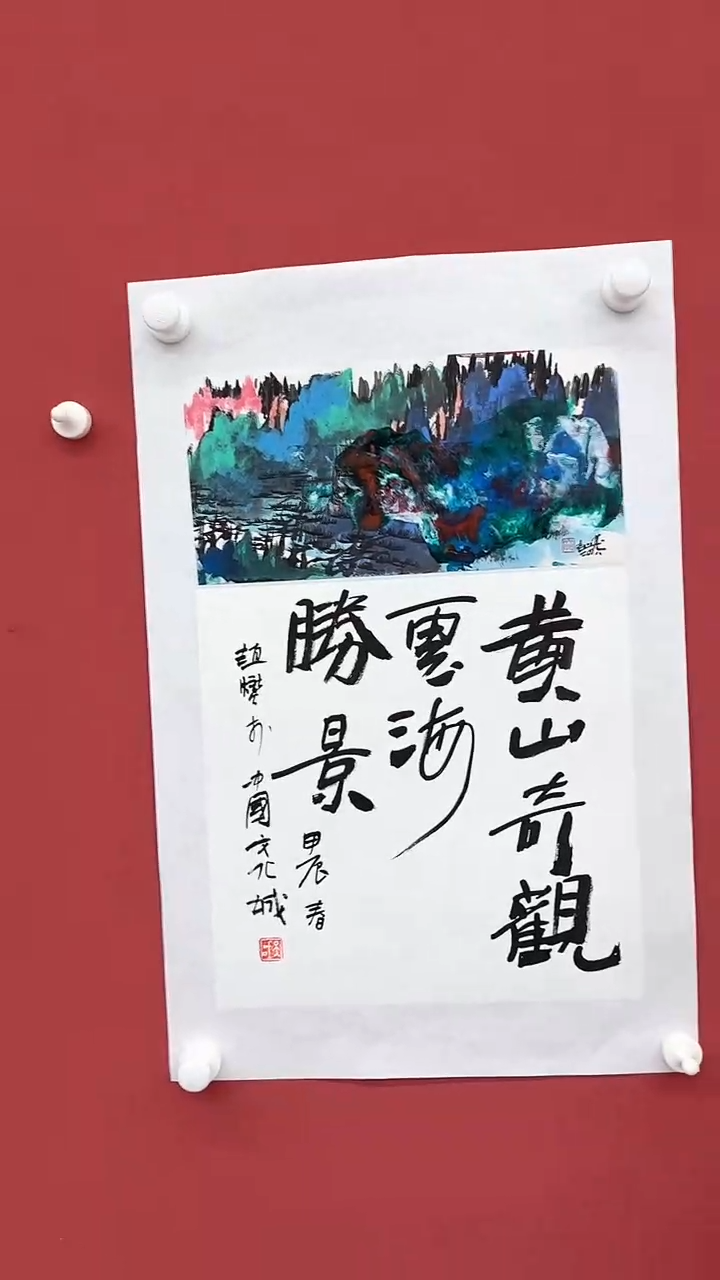 黄山奇觀
雲海
勝景
甲辰春
趙燮於中國文化城